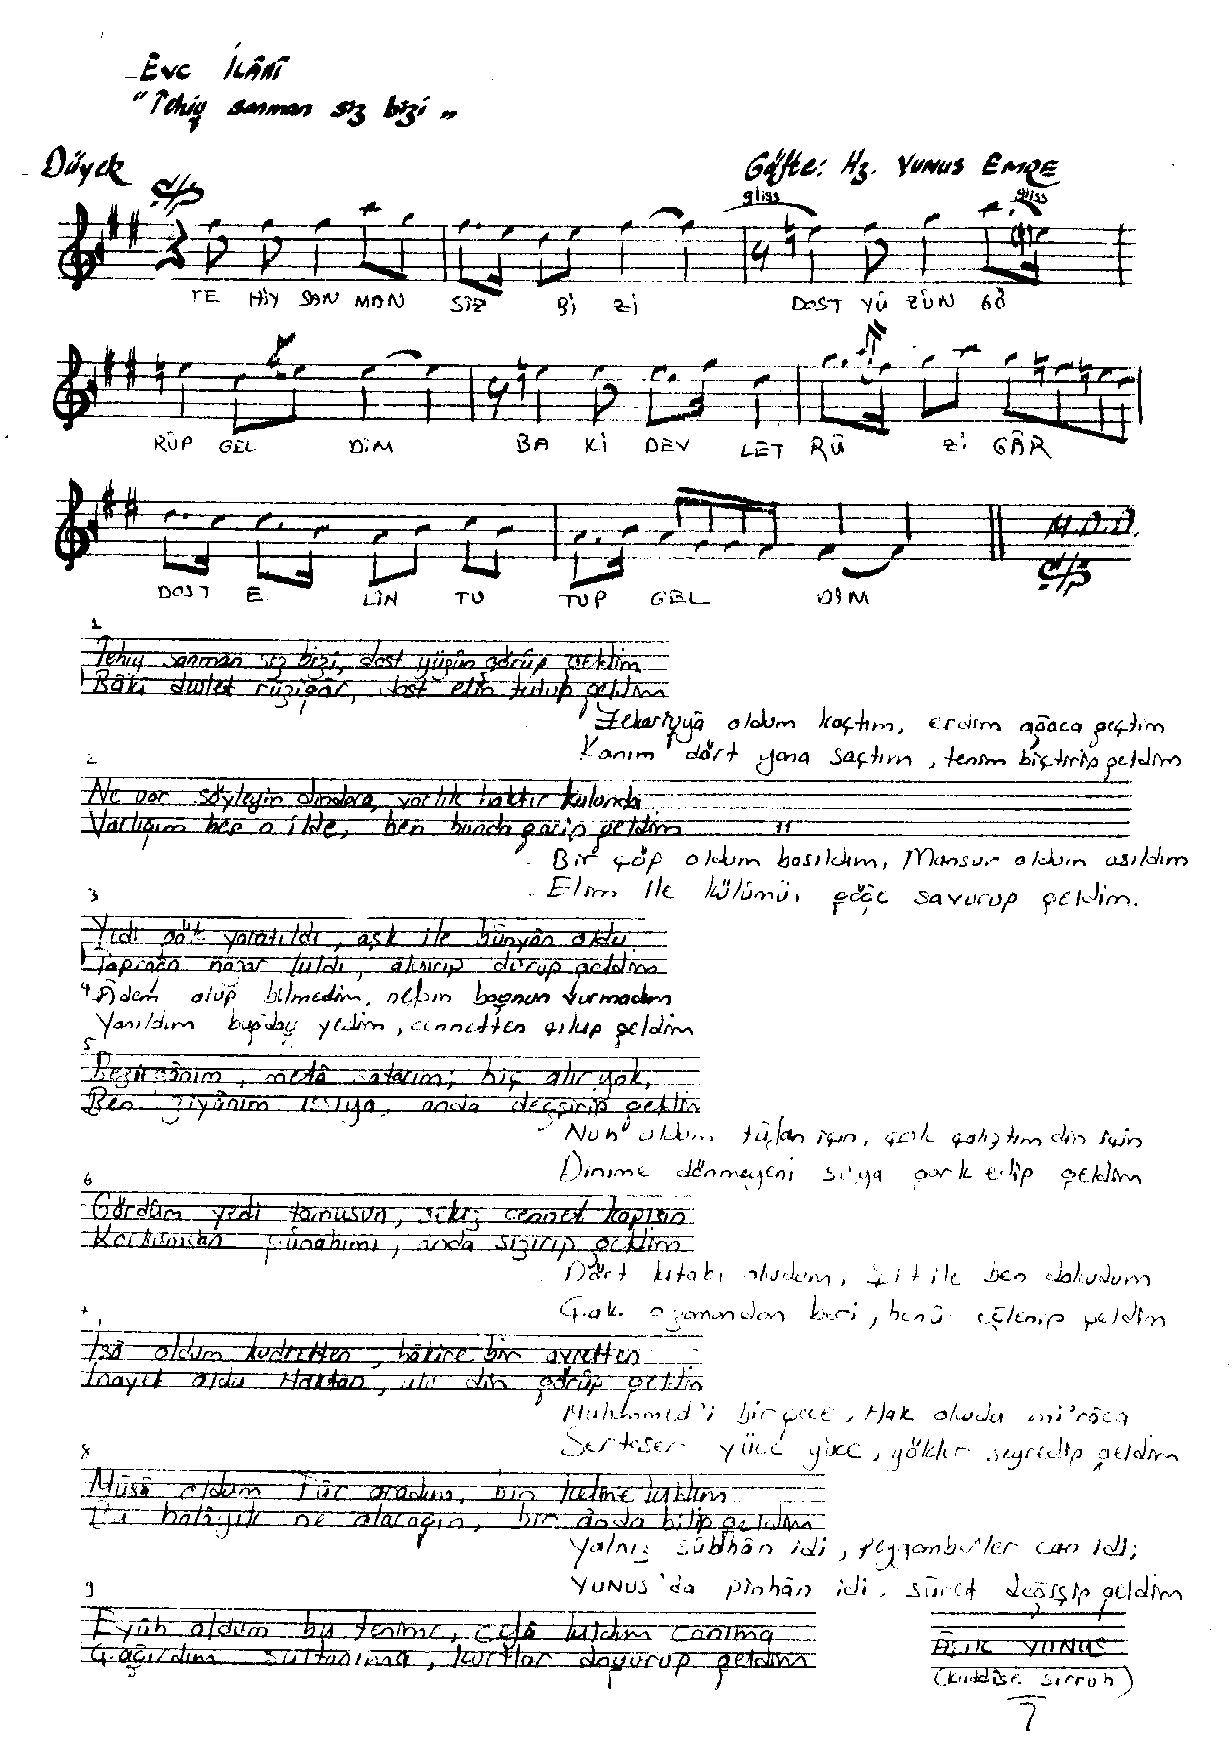 Evc İLÂHÎ
"Tehiy sanman siz bizi"
Düyek
Güfte: Hz. YUNUS EMRE
gliss gliss
TE HİY SAN MAN SİZ Bİ Zİ DOST YÜ ZÜN GÖ
RÜP GEL DİM BA Kİ DEV LET RÛ Zİ GÂR
M.D.D.
DOST E LİN TU TUP GEL DİM
1
Tehiy sanman siz bizi, dost yüzün görüp geldim
Bâki devlet rûzigâr, dost elin tutup geldim
Zekeriyyâ oldum kaçtım, erdim ağaca geçtim
Kanım dört yana saçtım, tenim biçtirip geldim
2
Ne var söyleyin
Varlığım hep o ilde, ben bunda garip geldim
11
Bir çöp oldum basıldım, Mansur oldum asıldım
Elim ile külümü, göğe savurup geldim.
3
Yedi gök yaratıldı, aşk ile bünyân oldu
Toprağa nazar kıldı, durup geldim
4 Âdem olup bilmedim, nefsin boynun vurmadım
Yanıldım buğday yedim, cennetten çıkıp geldim
5
Bezirgânım, metâ satarım, hiç alır yok,
Ben ziyânım anda değşirip geldim
Nuh oldum tûfan için, çok çalıştım din için
Dinime dönmeyeni suya gark edip geldim
6
Gördüm yedi tamusun, sekiz cennet kapısın
Korkusundan günahımı, anda sızırıp geldim
Dört kitabı okudum, ile ben dokudum
beri, eğlenip geldim
7
İsâ oldum kudretten, bâkire bir avretten
İnayet oldu Haktan, din görüp geldim
Muhammed'i bir gece, Hak okudu mi'râca
Serteser yüce yüce, gökler seyredip geldim
8
Mûsâ oldum Tûr aradım, bin kelime
halâyık ne alacağın, bir anda bilip geldim
Yalnız Sübhân idi, peygamberler can idi;
YUNUS'da pinhân idi, sûret değişip geldim
9
Eyûb oldum bu tenime, cefâ kıldım canıma
Çağırdım Sultanıma, kurtlar doyurup geldim
ÂŞIK YUNUS
(kuddise sırruh)
7